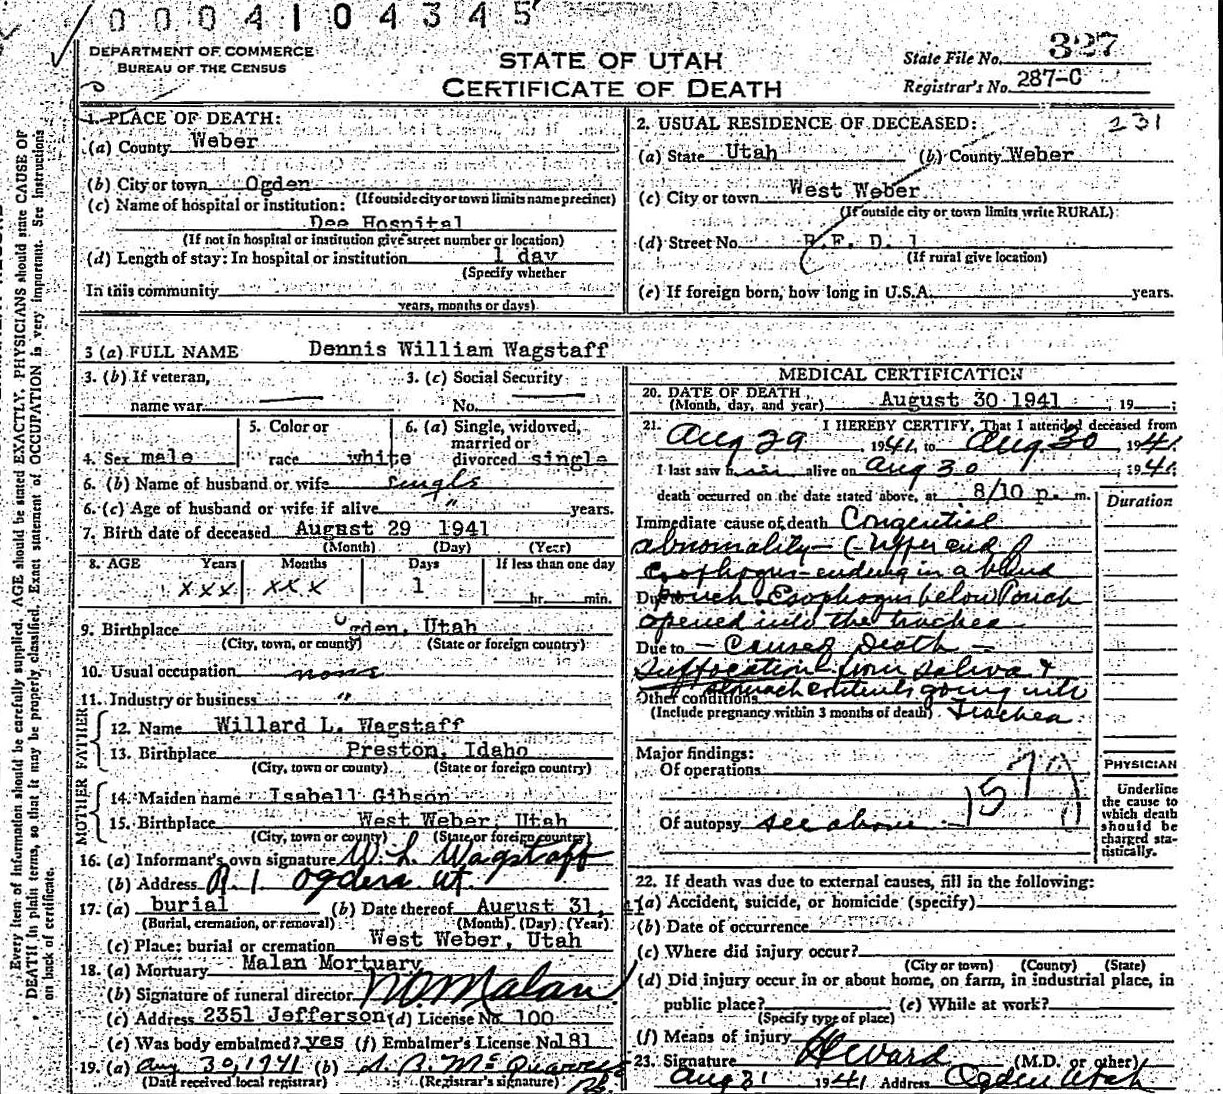 0004104345
DEPARTMENT OF COMMERCE
BUREAU OF THE CENSUS
STATE OF UTAH
CERTIFICATE OF DEATH
State File No. 327
Registrar's No. 287-C
1. PLACE OF DEATH:
(a) County Weber
(b) City or town Ogden
(If outside city or town limits name precinct)
(c) Name of hospital or institution:
Dee Hospital
(If not in hospital or institution give street number or location)
(d) Length of stay: In hospital or institution 1 day
(Specify whether
In this community
years, months or days)
2. USUAL RESIDENCE OF DECEASED: 231
(a) State Utah (b) County Weber
(c) City or town West Weber
(If outside city or town limits write RURAL)
(d) Street No. R.F.D. 1
(If rural give location)
(e) If foreign born, how long in U.S.A. years.
3 (a) FULL NAME Dennis William Wagstaff
3. (b) If veteran,
name war
3. (c) Social Security
No.
4. Sex male
5. Color or
race white
6. (a) Single, widowed,
married or
divorced single
6. (b) Name of husband or wife single
6. (c) Age of husband or wife if alive " years.
7. Birth date of deceased August 29 1941
(Month) (Day) (Year)
8. AGE Years Months Days If less than one day
xxx xxx 1 hr. min.
9. Birthplace Ogden, Utah
(City, town, or county) (State or foreign country)
10. Usual occupation none
11. Industry or business "
FATHER
12. Name Willard L. Wagstaff
13. Birthplace Preston, Idaho
(City, town or county) (State or foreign country)
MOTHER
14. Maiden name Isabell Gibson
15. Birthplace West Weber, Utah
(City, town or county) (State or foreign country)
16. (a) Informant's own signature W. L. Wagstaff
(b) Address R. 1 Ogden Ut.
17. (a) burial (b) Date thereof August 31, 41
(Burial, cremation, or removal) (Month) (Day) (Year)
(c) Place: burial or cremation West Weber, Utah
18. (a) Mortuary Malan Mortuary
(b) Signature of funeral director N.O. Malan
(c) Address 2351 Jefferson (d) License No. 100
(e) Was body embalmed? yes (f) Embalmer's License No. 181
19. (a) Aug 30, 1941 (b)
(Date received local registrar) (Registrar's signature)
MEDICAL CERTIFICATION
20. DATE OF DEATH
(Month, day, and year) August 30 1941, 19 ;
21. I HEREBY CERTIFY, That I attended deceased from
Aug 29 1941, to Aug. 30 1941.
I last saw him alive on Aug 30 1941
death occurred on the date stated above, at 8/10 p. m.
Duration
Immediate cause of death Congential
abnomality - (- Upper end of
Esophogus - ending in a blind
Due to pouch. Esophogus below Pouch
opened into the trachea
Due to - Caused Death -
suffocation from saliva &
Other conditions stomach contents going into
(Include pregnancy within 3 months of death) Trachea.
Major findings:
Of operations
Of autopsy see above
PHYSICIAN
Underline
the cause to
which death
should be
charged sta-
tistically.
22. If death was due to external causes, fill in the following:
(a) Accident, suicide, or homicide (specify)
(b) Date of occurrence
(c) Where did injury occur?
(City or town) (County) (State)
(d) Did injury occur in or about home, on farm, in industrial place, in
public place? (e) While at work?
(Specify type of place)
(f) Means of injury
23. Signature (M.D. or other)
Aug 31 1941 Address Ogden Utah
Every item of information should be carefully supplied. AGE should be stated EXACTLY. PHYSICIANS should state CAUSE OF
DEATH in plain terms, so that it may be properly classified. Exact statement of OCCUPATION is very important. See instructions
on back of certificate.